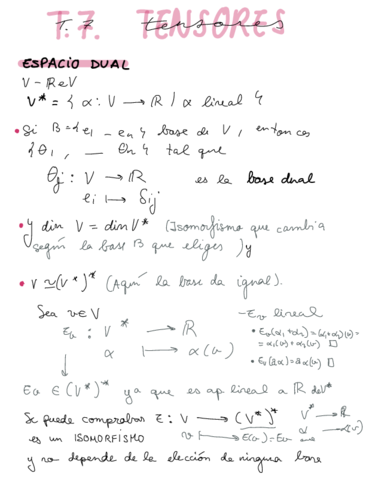 T.7. TENSORES
ESPACIO DUAL
V - ℝeV
V* = { α: V → ℝ / α lineal }
• Si B = {e₁ - en} base de V, entonces
{θ₁, — θn} tal que
θj : V → ℝ es la base dual
ei ↦ δij
• y dim V = dim V* (Isomorfismo que cambia
según la base B que eliges) y
• V ≃ (V*)* (Aquí la base da igual).
Sea v ∈ V
Ev : V* → ℝ
α ↦ α(v)
- Ev lineal
• Ev(α₁+α₂) = (α₁+α₂)(v) =
= α₁(v) + α₂(v) □
• Ev(aα) = aα(v) □
Ev ∈ (V*)* ya que es ap lineal a ℝ de V*
Se puede comprobar E: V → (V*)*
es un ISOMORFISMO v ↦ E(v) = Ev
V* → ℝ
α ↦ α(v)
y no depende de la elección de ninguna base